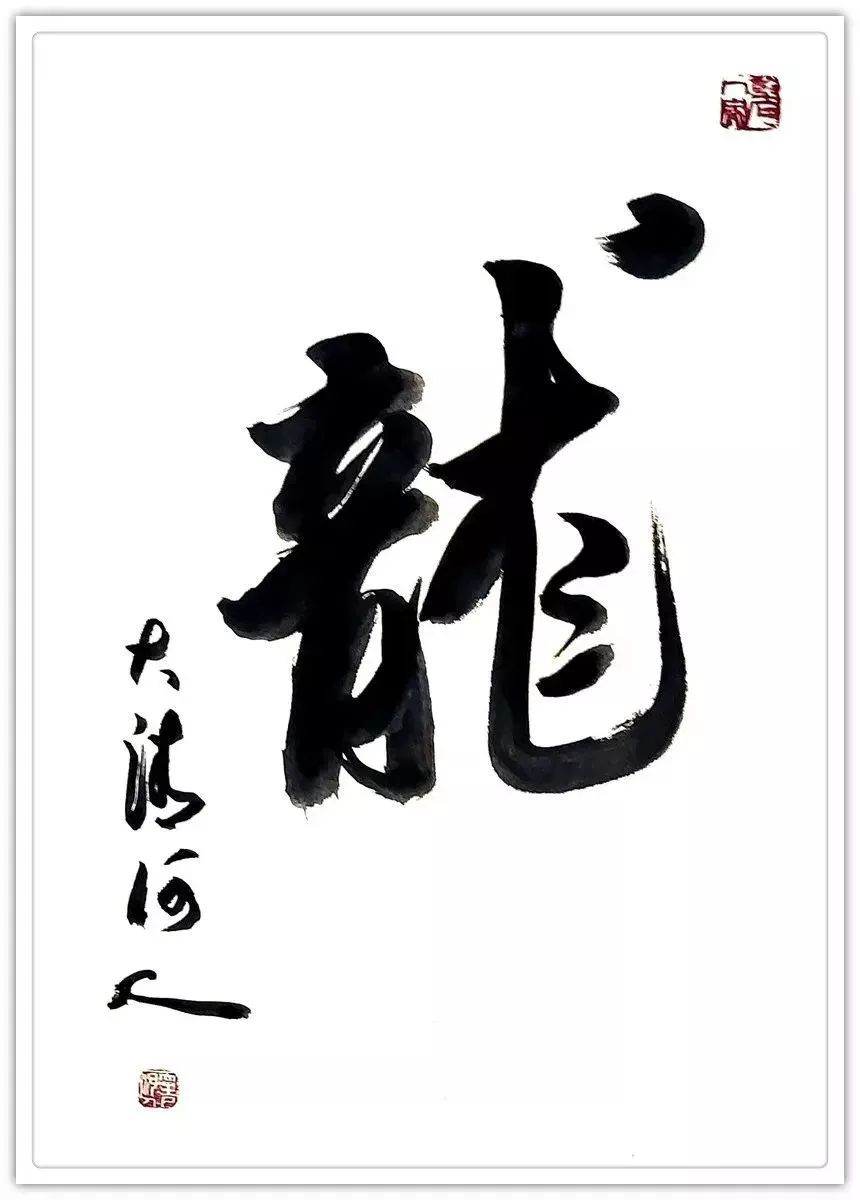 龍
大清河人